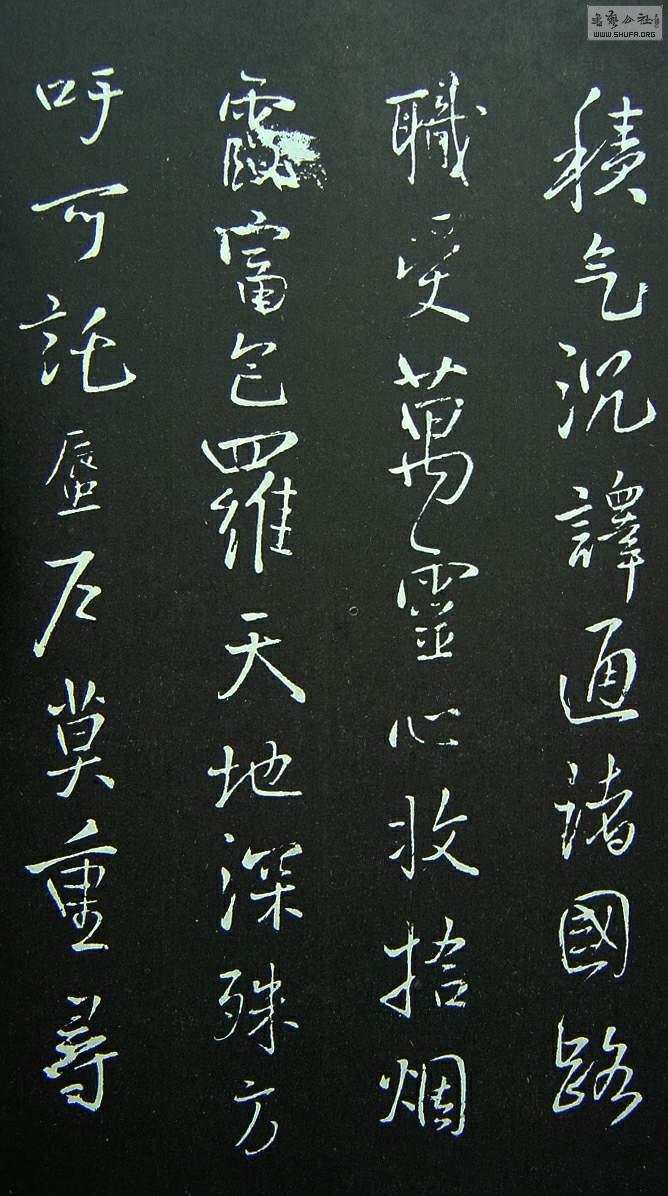 書藝公社
WWW.SHUFA.ORG
積气沉譯通諸國路
職受萬靈心收拾烟
霞富包羅天地深殊方
呼可託莫重尋